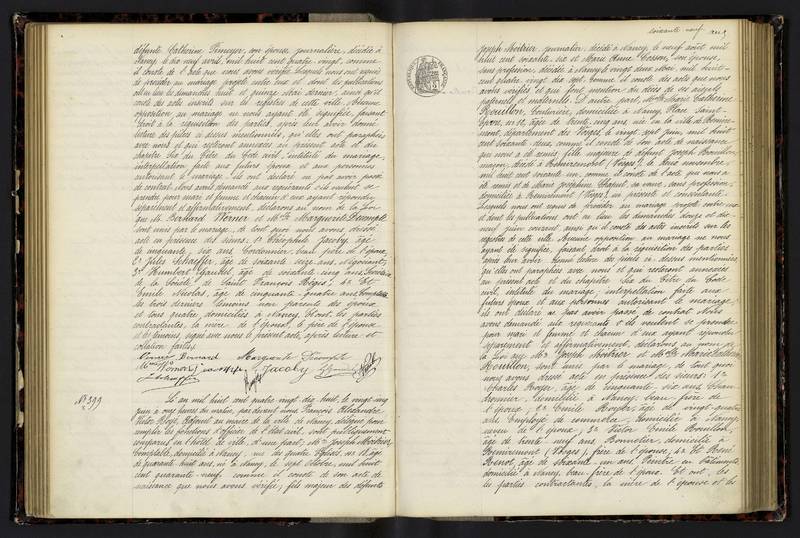 défunte Catherine son épouse, journalière, décédée à
Nancy, le dix neuf avril mil huit cent quatre vingt, comme
il conste de l'acte que nous avons vérifié. Lesquels nous ont requis
de procéder au mariage projeté entre eux et dont les publications
ont eu lieu les dimanches huit et quinze Mai dernier, ainsi qu'il
conste des actes inscrits sur les registres de cette ville. Aucune
opposition au mariage ne nous ayant été signifiée, faisant
droit à la réquisition des parties, après leur avoir donné
lecture des pièces ci dessus mentionnées, qu'elles ont paraphées
avec nous et qui resteront annexées au présent acte et du
chapitre six du Titre du Code civil, intitulé du mariage,
interpellation faite aux futurs époux et aux personnes
autorisant le mariage, ils ont déclaré ne pas avoir passé
de contrat. Nous avons demandé aux requérants s'ils veulent se
prendre pour mari et femme et chacun d'eux ayant répondu
séparément et affirmativement, déclarons au nom de la Loi
que Mr Bernard Werner et Mlle Marguerite
sont unis par le mariage, de tout quoi nous avons dressé
acte en présence des sieurs: 1° Théophile Jacoby, âgé
de cinquante six ans, Cordonnier, beau père de l'époux,
2° Jules Schaeffer, âgé de soixante seize ans, Négociant,
3° Humbert Gaudel, âgé de soixante cinq ans,
de la Société de Saint François Régis, 4° Et
Emile Nicolas, âgé de cinquante quatre ans,
les trois derniers témoins non parents des époux
et tous quatre domiciliés à Nancy. Et ont, les parties
contractantes, la mère de l'époux, le père de l'épouse
et les témoins, signé avec nous le présent acte, après lecture et
collation faites.
Werner Bernard Marguerite
Jacoby
N° 399
L'an mil huit cent quatre vingt dix huit, le vingt cinq
Juin à onze heures du matin, par devant nous François Alexandre
Victor Adjoint au maire de la ville de Nancy, délégué pour
remplir les fonctions d'Officier de l'état civil, sont publiquement
comparus en l'hôtel de ville, d'une part, Mr Joseph Moitrier,
Comptable, domicilié à Nancy, rue des quatre Eglises, n° 18, âgé
de quarante huit ans, né à Nancy, le sept Octobre, mil huit
cent quarante neuf, comme il conste de son acte de
naissance que nous avons vérifié; fils majeur des défunts
soixante neuf
Joseph Moitrier, journalier, décédé à Nancy, le neuf août mil
huit cent soixante six et Marie Anne Cosson, son épouse,
sans profession, décédée à Nancy le vingt deux Mai, mil huit
cent quatre vingt dix sept, comme il conste des actes que nous
avons vérifiés et qui font mention du décès de ses aïeuls
paternels et maternels. D'autre part, Mlle Marie Catherine
Rouillon, Couturière, domiciliée à Nancy, Place Saint
n° 12, âgée de trente cinq ans, née en la ville de Remire-
mont, département des Vosges, le vingt sept juin, mil huit
cent soixante deux, comme il conste de son acte de naissance
que nous a été remis, fille majeure de défunt Joseph Rouillon,
maçon, décédé à (Vosges), le deux novembre,
mil huit cent soixante un, comme il conste de l'acte que nous a
été remis et de Marie Joséphine sa veuve, sans profession,
domiciliée à Remiremont (Vosges), ici présente et consentante.
Lesquels nous ont requis de procéder au mariage projeté entre eux
et dont les publications ont eu lieu les dimanches douze et dix-
neuf juin courant, ainsi qu'il conste des actes inscrits sur les
registres de cette ville. Aucune opposition au mariage ne nous
ayant été signifiée, faisant droit à la réquisition des parties,
après leur avoir donné lecture des pièces ci dessus mentionnées,
qu'elles ont paraphées avec nous et qui resteront annexées
au présent acte et du chapitre six du Titre du Code
civil, intitulé du mariage, interpellation faite aux
futurs époux et aux personnes autorisant le mariage,
ils ont déclaré ne pas avoir passé de contrat. Nous
avons demandé aux requérants s'ils veulent se prendre
pour mari et femme et chacun d'eux ayant répondu
séparément et affirmativement, déclarons au nom de
la Loi que Mr Joseph Moitrier et Mlle Marie Catherine
Rouillon, sont unis par le mariage, de tout quoi
nous avons dressé acte en présence des sieurs: 1°
Charles Royer, âgé de cinquante six ans, Chau-
dronnier, domicilié à Nancy, beau frère de
l'époux, 2° Emile Royer, âgé de vingt quatre
ans, Employé de commerce, domicilié à Nancy,
neveu de l'époux, 3° Victor Emile Rouillon,
âgé de trente neuf ans, Bonnetier, domicilié à
Remiremont (Vosges), frère de l'épouse, 4° Et René
âgé de soixante un ans, Peintre en bâtiments,
domicilié à Nancy, beau frère de l'époux. Et ont, les
les parties contractantes, la mère de l'épouse et les